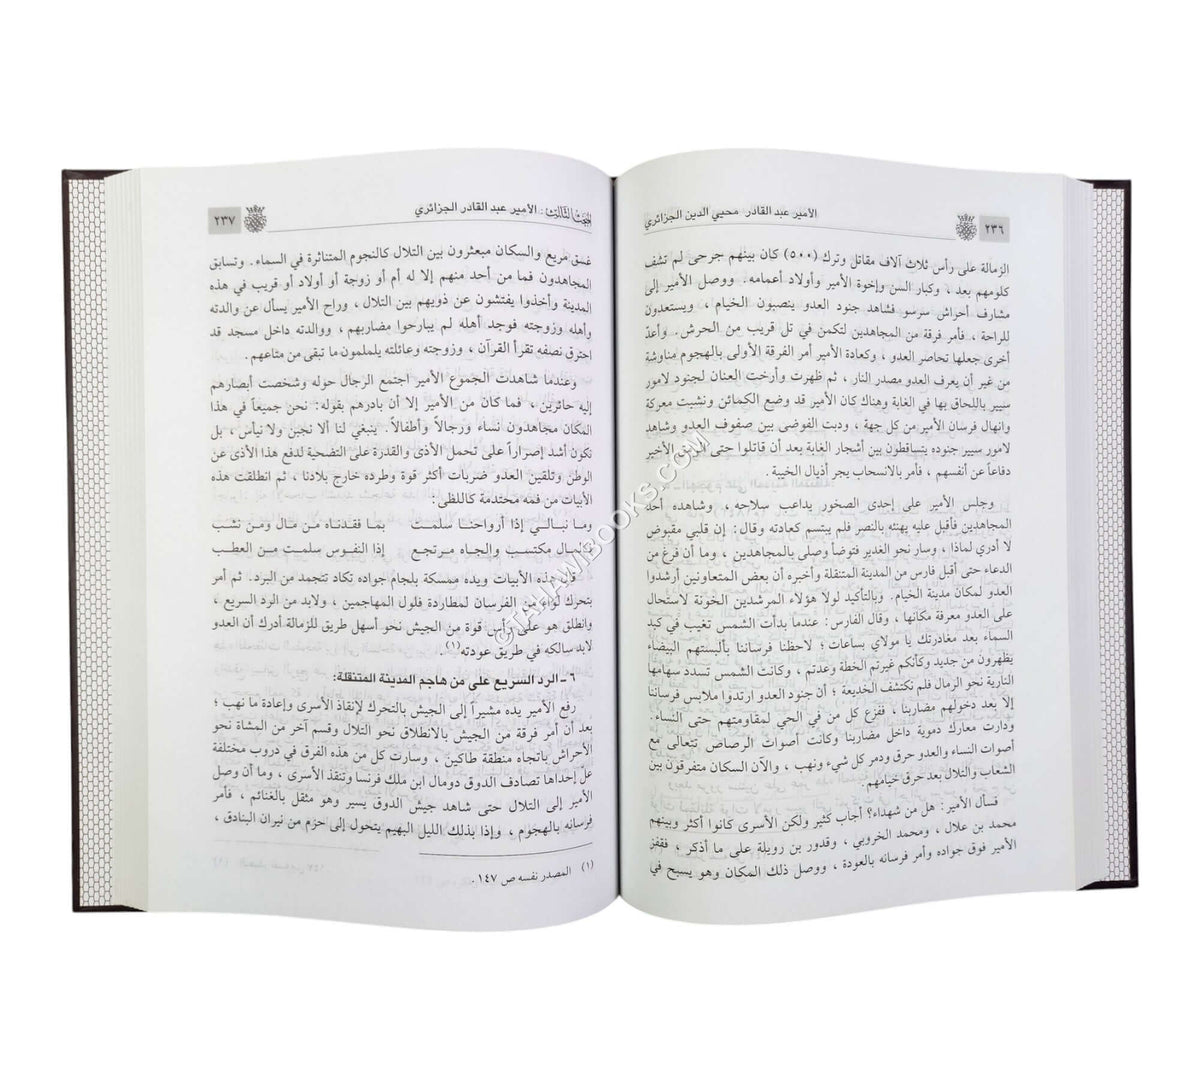 ٢٣٦
الأمير عبد القادر محيي الدين الجزائري
الزمالة على رأس ثلاث آلاف مقاتل وترك (٥٠٠) كان بينهم جرحى لم تشف
كلومهم بعد ، وكبار السن وإخوة الأمير وأولاد أعمامه . ووصل الأمير إلى
مشارف أحراش سرسو فشاهد جنود العدو ينصبون الخيام ، ويستعدون
للراحة ، فأمر فرقة من المجاهدين لتكمن في تل قريب من الحرش . وأعدّ
أخرى جعلها تحاصر العدو ، وكعادة الأمير أمر الفرقة الأولى بالهجوم مناوشة
من غير أن يعرف العدو مصدر النار ، ثم ظهرت وأرخت العنان لجنود لامور
سيير باللحاق بها في الغابة وهناك كان الأمير قد وضع الكمائن ونشبت معركة
وانهال فرسان الأمير من كل جهة ، ودبت الفوضى بين صفوف العدو وشاهد
لامور سيير جنوده يتساقطون بين أشجار الغابة بعد أن قاتلوا حتى الرمق الأخير
دفاعاً عن أنفسهم ، فأمر بالانسحاب يجر أذيال الخيبة .
وجلس الأمير على إحدى الصخور يداعب سلاحه ، وشاهده أحد
المجاهدين فأقبل عليه يهنئه بالنصر فلم يبتسم كعادته وقال : إن قلبي مقبوض
لا أدري لماذا ، وسار نحو الغدير فتوضأ وصلى بالمجاهدين ، وما أن فرغ من
الدعاء حتى أقبل فارس من المدينة المتنقلة وأخبره أن بعض المتعاونين أرشدوا
العدو لمكان مدينة الخيام . وبالتأكيد لولا هؤلاء المرشدين الخونة لاستحال
على العدو معرفة مكانها ، وقال الفارس : عندما بدأت الشمس تغيب في كبد
السماء بعد مغادرتك يا مولاي بساعات ؛ لاحظنا فرساننا بألبستهم البيضاء
يظهرون من جديد وكأنكم غيرتم الخطة وعدتم ، وكانت الشمس تسدد سهامها
النارية نحو الرمال فلم نكتشف الخديعة ؛ أن جنود العدو ارتدوا ملابس فرساننا
إلا بعد دخولهم مضاربنا ، ففزع كل من في الحي لمقاومتهم حتى النساء .
ودارت معارك دموية داخل مضاربنا وكانت أصوات الرصاص تتعالى مع
أصوات النساء والعدو حرق ودمر كل شيء ونهب ، والآن السكان متفرقون بين
الشعاب والتلال بعد حرق خيامهم .
فسأل الأمير : هل من شهداء؟ أجاب كثير ولكن الأسرى كانوا أكثر وبينهم
محمد بن علال ، ومحمد الخروبي ، وقدور بن رويلة على ما أذكر ، فقفز
الأمير فوق جواده وأمر فرسانه بالعودة ، ووصل ذلك المكان وهو يسبح في
المبحث الثالث : الأمير عبد القادر الجزائري
٢٣٧
غسق مريع والسكان مبعثرون بين التلال كالنجوم المتناثرة في السماء . وتسابق
المجاهدون فما من أحد منهم إلا له أم أو زوجة أو أولاد أو قريب في هذه
المدينة وأخذوا يفتشون عن ذويهم بين التلال ، وراح الأمير يسأل عن والدته
وأهله وزوجته فوجد أهله لم يبارحوا مضاربهم ، ووالدته داخل مسجد قد
احترق نصفه تقرأ القرآن ، وزوجته وعائلته يلملمون ما تبقى من متاعهم .
وعندما شاهدت الجموع الأمير اجتمع الرجال حوله وشخصت أبصارهم
إليه حائرين ، فما كان من الأمير إلا أن بادرهم بقوله : نحن جميعاً في هذا
المكان مجاهدون نساء ورجالاً وأطفالاً . ينبغي لنا ألا نجبن ولا نيأس ، بل
نكون أشد إصراراً على تحمل الأذى والقدرة على التضحية لدفع هذا الأذى عن
الوطن وتلقين العدو ضربات أكثر قوة وطرده خارج بلادنا ، ثم انطلقت هذه
الأبيات من فمه محتدمة كاللظى :
وما نبالي إذا أرواحنا سلمت بما فقدناه من مال ومن نشب
فالمال مكتسب والجاه مرتجع إذا النفوس سلمت من العطب
قال هذه الأبيات ويده ممسكة بلجام جواده تكاد تتجمد من البرد . ثم أمر
بتحرك لواء من الفرسان لمطاردة فلول المهاجمين ، ولابد من الرد السريع ،
وانطلق هو على رأس قوة من الجيش نحو أسهل طريق للزمالة أدرك أن العدو
لابد سالكه في طريق عودته(١) .
٦ ـ الرد السريع على من هاجم المدينة المتنقلة:
رفع الأمير يده مشيراً إلى الجيش بالتحرك لإنقاذ الأسرى وإعادة ما نهب ؛
بعد أن أمر فرقة من الجيش بالانطلاق نحو التلال وقسم آخر من المشاة نحو
الأحراش باتجاه منطقة طاكين ، وسارت كل من هذه الفرق في دروب مختلفة
علّ إحداها تصادف الدوق دومال ابن ملك فرنسا وتنقذ الأسرى ، وما أن وصل
الأمير إلى التلال حتى شاهد جيش الدوق يسير وهو مثقل بالغنائم ، فأمر
فرسانه بالهجوم ، وإذا بذلك الليل البهيم يتحول إلى حزم من نيران البنادق ،
(١) المصدر نفسه ص ١٤٧ .
©TAHAWIBOOKS.COM